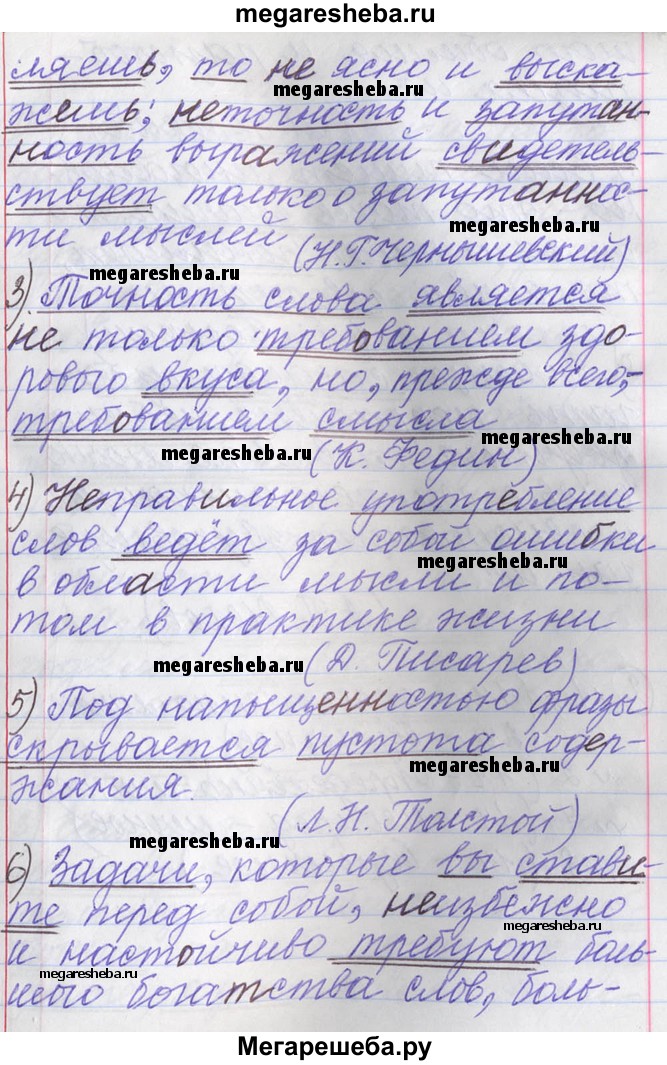 megaresheba.ru
ляешь, то не ясно и выска-
megaresheba.ru
жешь; неточность и запутан-
ность выражений свидетель-
ствует только о запутаннос-
megaresheba.ru
ти мыслей (Н.Г.Чернышевский)
megaresheba.ru
3) Точность слова является
не только требованием здо-
рового вкуса, но, прежде всего,-
требованием смысла
megaresheba.ru
(К. Федин)
4) Неправильное употребление
слов ведёт за собой ошибки
megaresheba.ru
в области мысли и по-
том в практике жизни
megaresheba.ru
(Д. Писарев)
5) Под напыщенностью фразы
скрывается пустота содер-
megaresheba.ru
жания.
(Л.Н. Толстой)
megaresheba.ru
6) Задачи, которые вы стави-
те перед собой, неизбежно
и настойчиво требуют боль-
megaresheba.ru
megaresheba.ru
шого богатства слов, боль-
Мегарешеба.ру